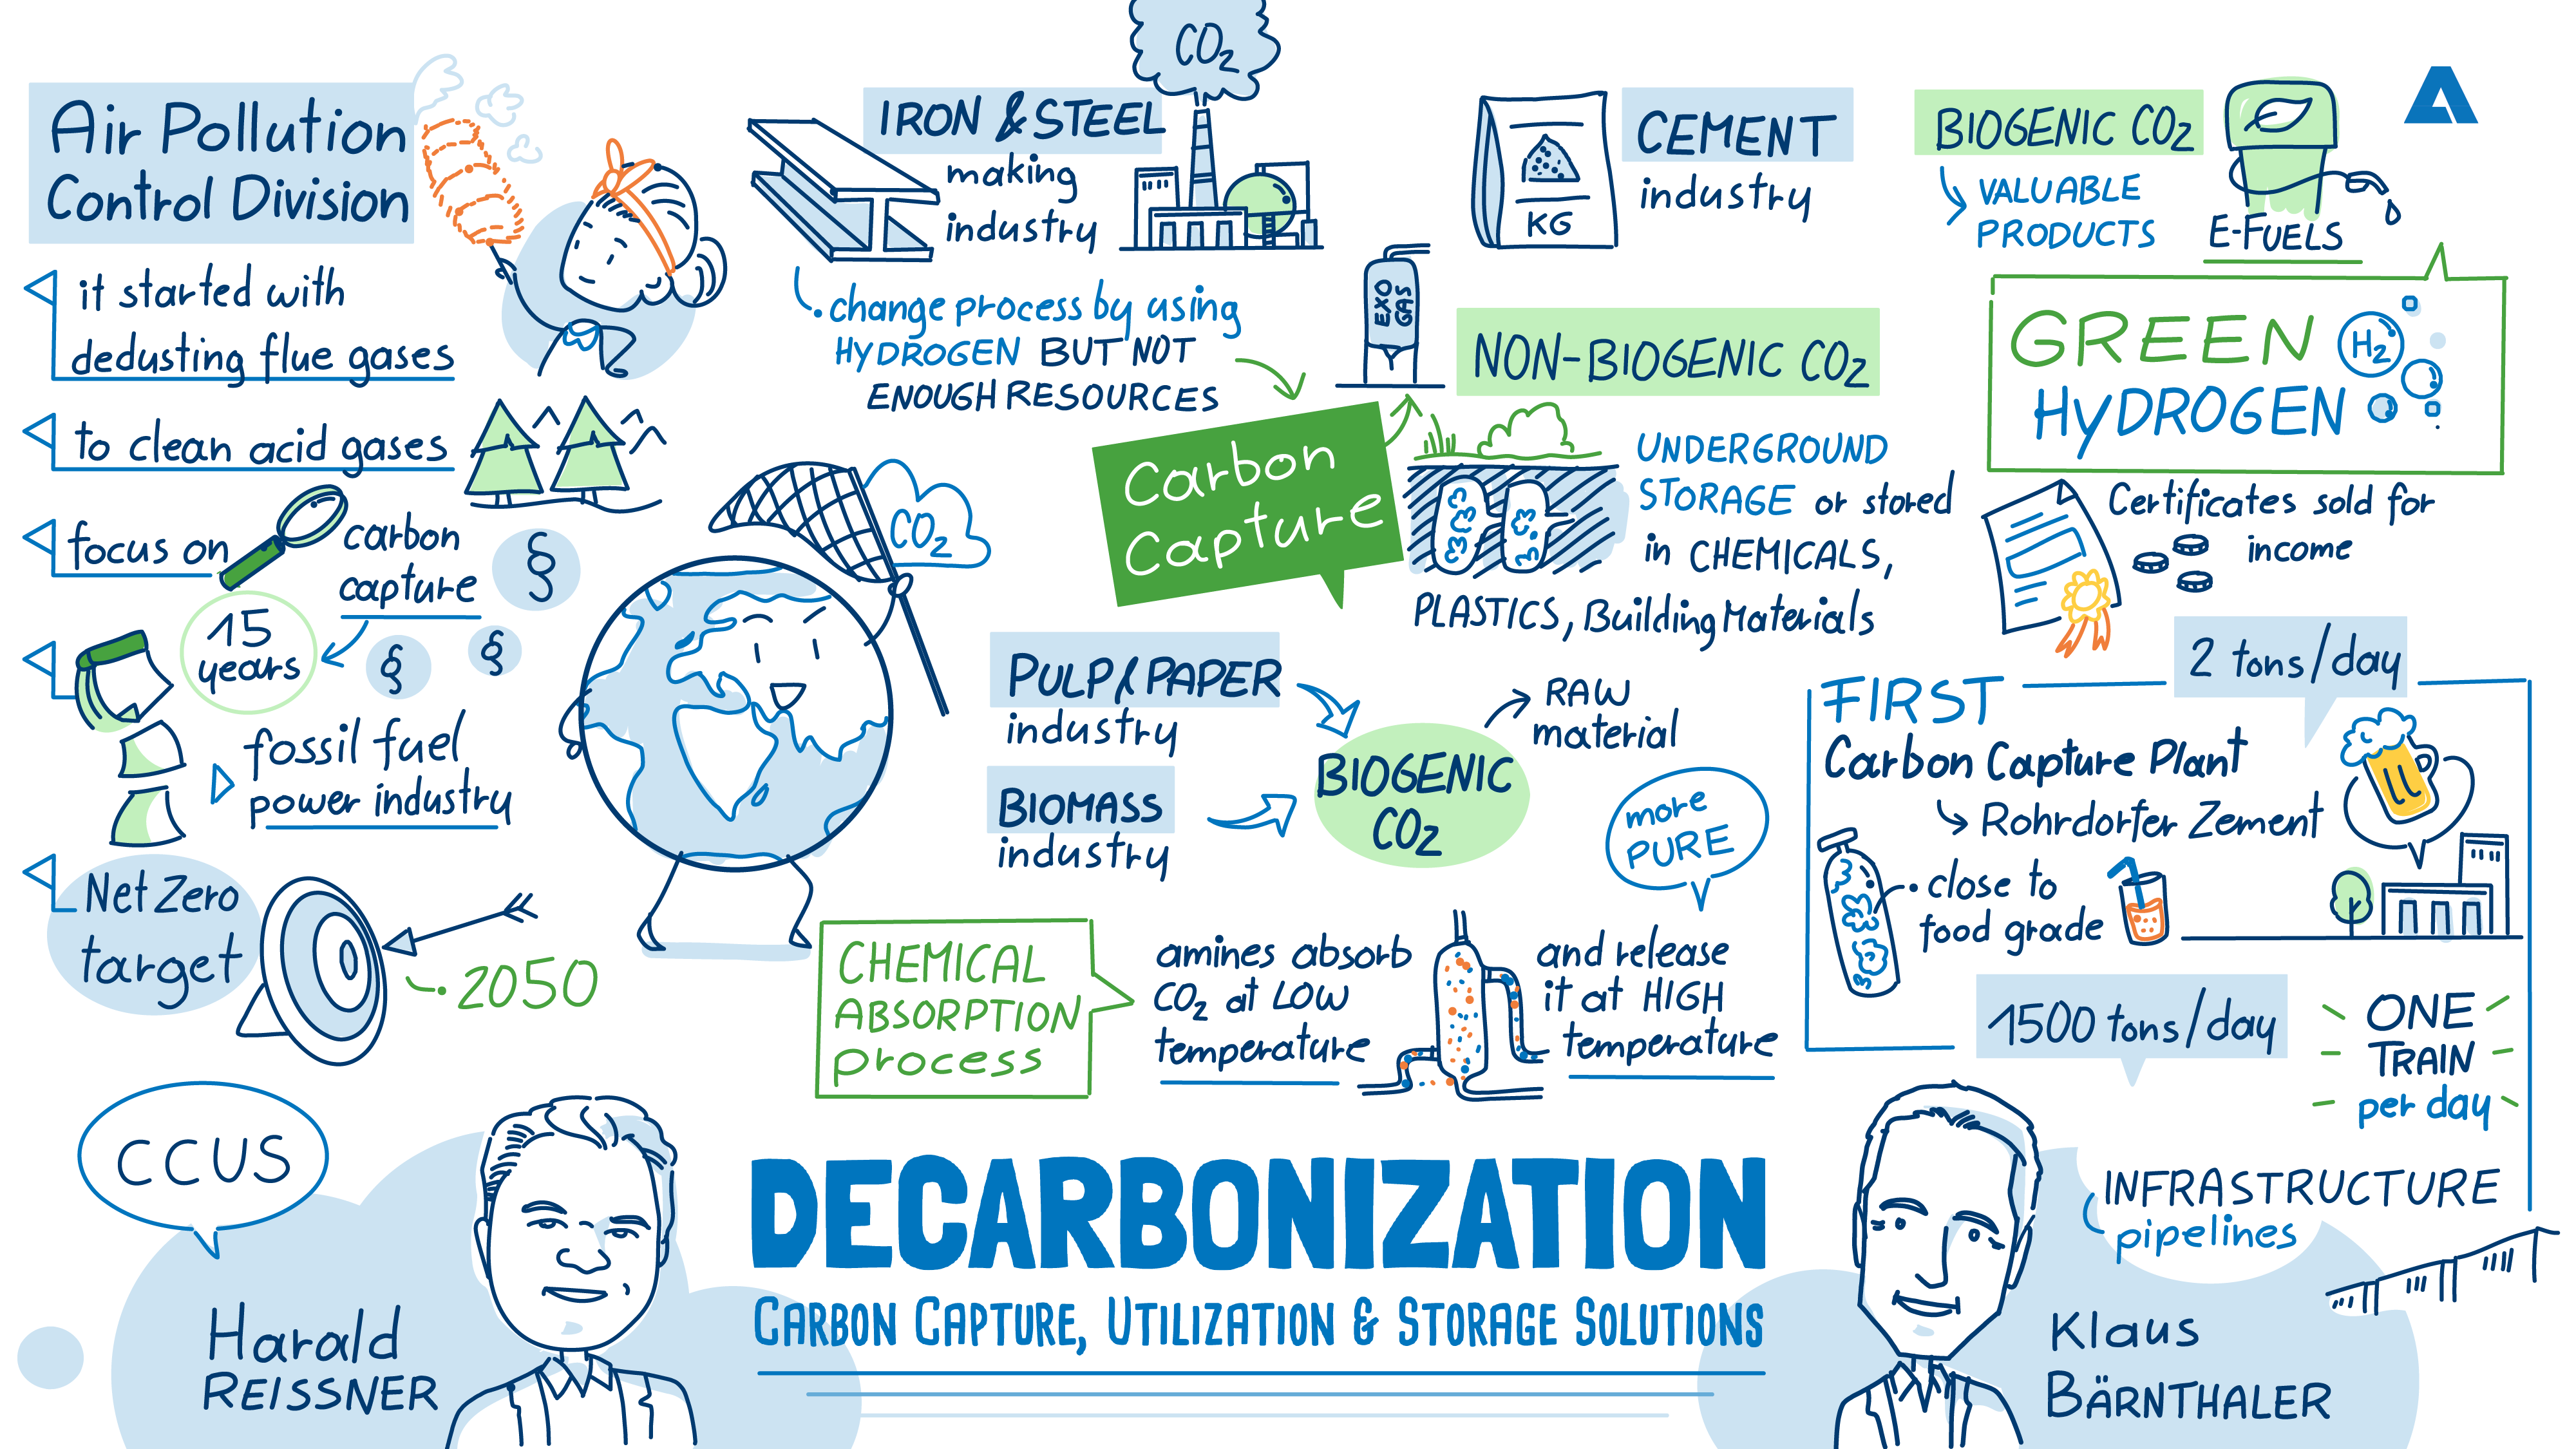 Air Pollution
Control Division
it started with
dedusting flue gases
to clean acid gases
focus on
carbon
capture
§
§
§
15
years
fossil fuel
power industry
Net Zero
target
2050
CO₂
IRON & STEEL
making
industry
CO₂
change process by using
HYDROGEN BUT NOT
ENOUGH RESOURCES
Carbon
Capture
EXO
GAS
KG
CEMENT
industry
NON-BIOGENIC CO₂
UNDERGROUND
STORAGE or stored
in CHEMICALS,
PLASTICS, Building Materials
BIOGENIC CO₂
VALUABLE
PRODUCTS
E-FUELS
GREEN
HYDROGEN
H₂
Certificates sold for
income
PULP & PAPER
industry
BIOMASS
industry
BIOGENIC
CO₂
RAW
material
more
PURE
CHEMICAL
ABSORPTION
process
amines absorb
CO₂ at LOW
temperature
and release
it at HIGH
temperature
2 tons/day
FIRST
Carbon Capture Plant
Rohrdorfer Zement
close to
food grade
1500 tons/day
ONE
TRAIN
per day
INFRASTRUCTURE
pipelines
CCUS
Harald
REISSNER
DECARBONIZATION
CARBON CAPTURE, UTILIZATION & STORAGE SOLUTIONS
Klaus
BÄRNTHALER